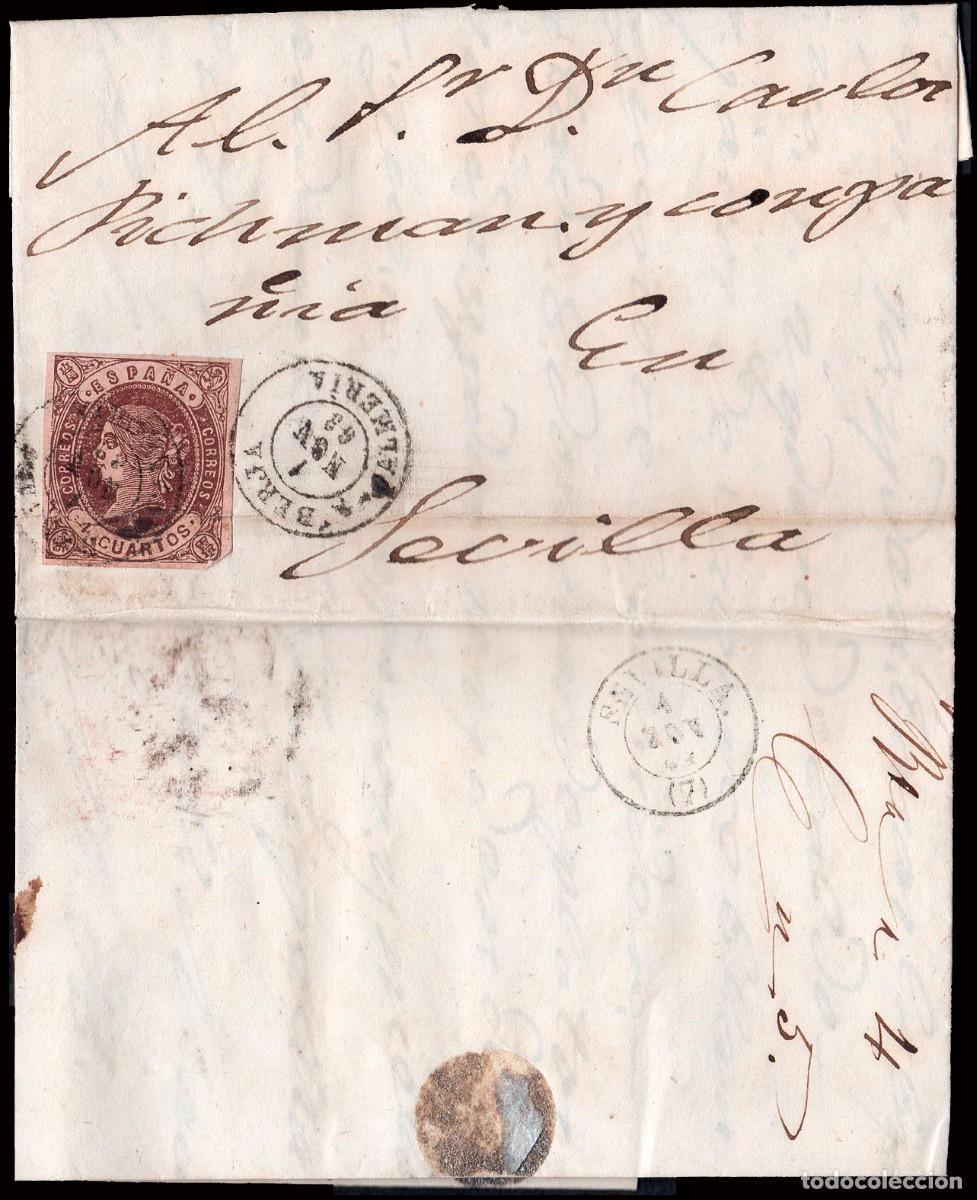 Al. Sr. Dn Carlos
Pickman. y compa
ñia
En
Sevilla
ESPAÑA
CORREOS
CORREOS
4 CUARTOS
BERJA
ALMERIA
1
NOV
63
SEVILLA.
4
NOV
(7)
4
C
5.
todocoleccion